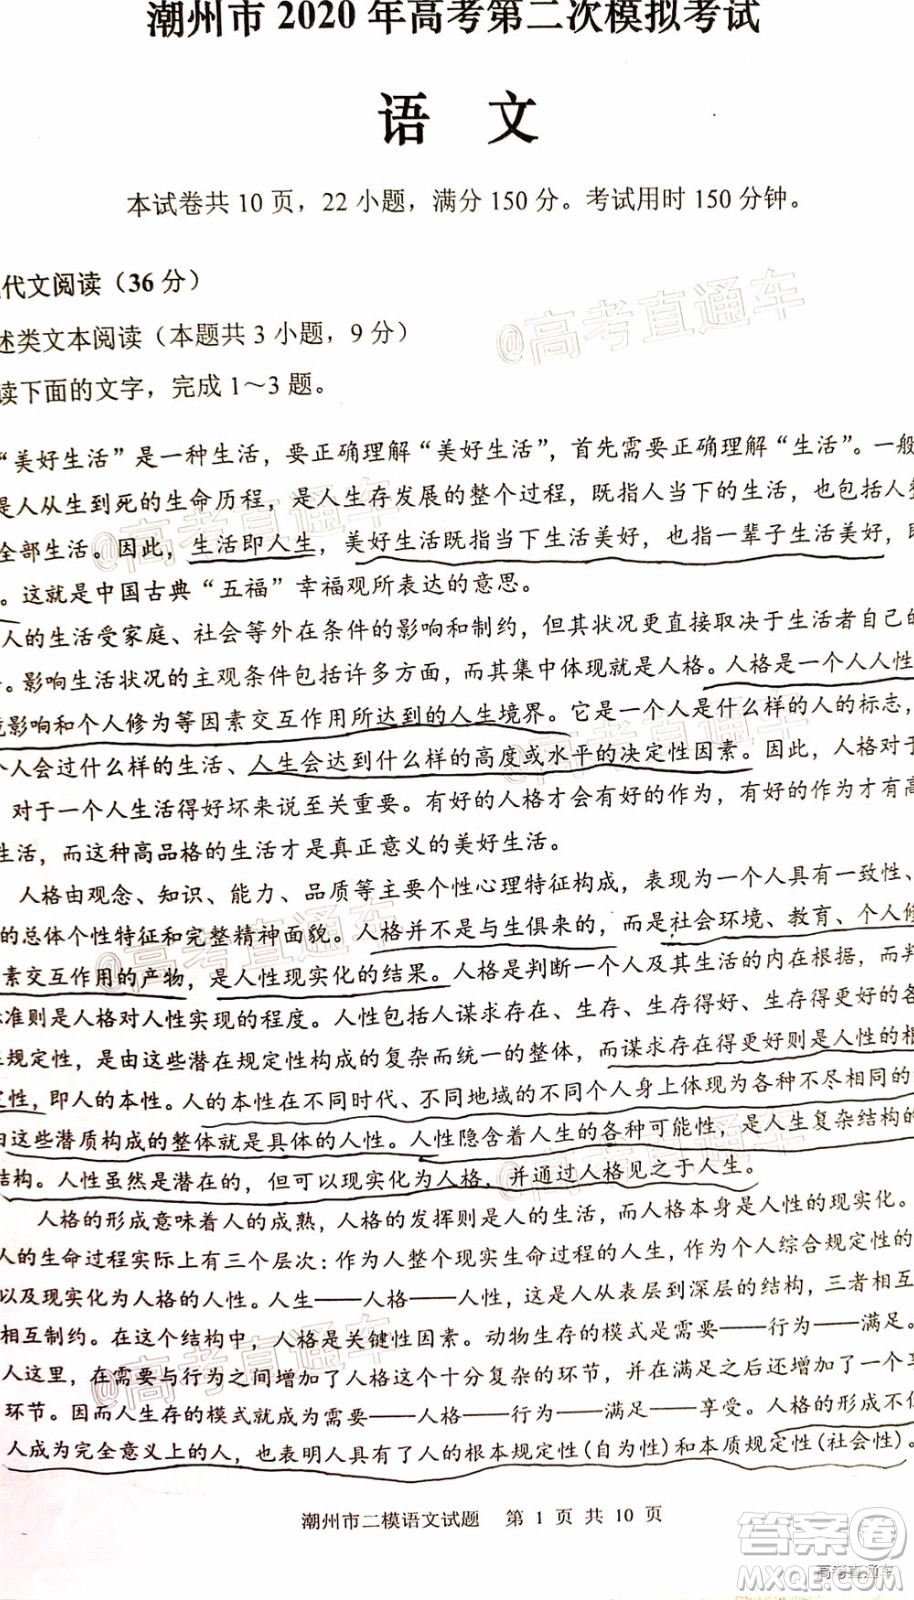 潮州市 2020 年高考第二次模拟考试
语 文
本试卷共 10 页，22 小题，满分 150 分。考试用时 150 分钟。
代文阅读（36 分）
述类文本阅读（本题共 3 小题，9 分）
读下面的文字，完成 1～3 题。
“美好生活”是一种生活，要正确理解“美好生活”，首先需要正确理解“生活”。一般
是人从生到死的生命历程，是人生存发展的整个过程，既指人当下的生活，也包括人
全部生活。因此，生活即人生，美好生活既指当下生活美好，也指一辈子生活美好，即
。这就是中国古典“五福”幸福观所表达的意思。
人的生活受家庭、社会等外在条件的影响和制约，但其状况更直接取决于生活者自己的
。影响生活状况的主观条件包括许多方面，而其集中体现就是人格。人格是一个人人性
影响和个人修为等因素交互作用所达到的人生境界。它是一个人是什么样的人的标志，
个人会过什么样的生活、人生会达到什么样的高度或水平的决定性因素。因此，人格对于
对于一个人生活得好坏来说至关重要。有好的人格才会有好的作为，有好的作为才有高
生活，而这种高品格的生活才是真正意义的美好生活。
人格由观念、知识、能力、品质等主要个性心理特征构成，表现为一个人具有一致性、
的总体个性特征和完整精神面貌。人格并不是与生俱来的，而是社会环境、教育、个人修
素交互作用的产物，是人性现实化的结果。人格是判断一个人及其生活的内在根据，而判
标准则是人格对人性实现的程度。人性包括人谋求存在、生存、生存得好、生存得更好的各
规定性，是由这些潜在规定性构成的复杂而统一的整体，而谋求存在得更好则是人性的根
定性，即人的本性。人的本性在不同时代、不同地域的不同个人身上体现为各种不尽相同的
由这些潜质构成的整体就是具体的人性。人性隐含着人生的各种可能性，是人生复杂结构的
结构。人性虽然是潜在的，但可以现实化为人格，并通过人格见之于人生。
人格的形成意味着人的成熟，人格的发挥则是人的生活，而人格本身是人性的现实化。
人的生命过程实际上有三个层次：作为人整个现实生命过程的人生，作为个人综合规定性的
以及现实化为人格的人性。人生——人格——人性，这是人从表层到深层的结构，三者相互
相互制约。在这个结构中，人格是关键性因素。动物生存的模式是需要——行为——满足。
人这里，在需要与行为之间增加了人格这个十分复杂的环节，并在满足之后又增加了一个享
环节。因而人生存的模式就成为需要——人格——行为——满足——享受。人格的形成不仅
人成为完全意义上的人，也表明人具有了人的根本规定性(自为性)和本质规定性(社会性)。
潮州市二模语文试题 第 1 页 共 10 页
@高考直通车
@高考直通车
@高考直通车
@高考直通车
@高考直通车
@高考直通车
答案卷
高考直通车
MXQE.COM